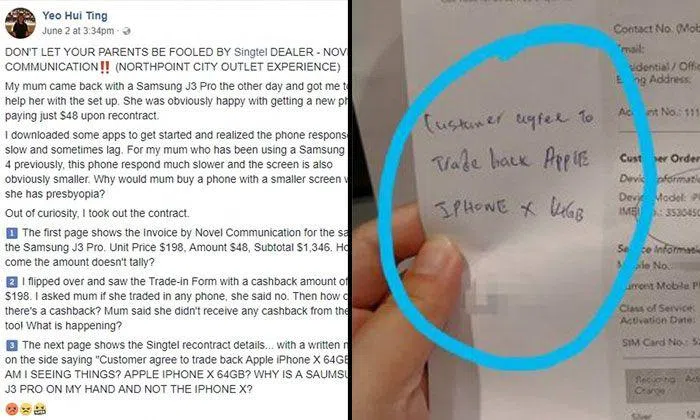 Yeo Hui Ting
June 2 at 3:34pm ·
DON'T LET YOUR PARENTS BE FOOLED BY Singtel DEALER - NOV
COMMUNICATION‼ (NORTHPOINT CITY OUTLET EXPERIENCE)
My mum came back with a Samsung J3 Pro the other day and got me to
help her with the set up. She was obviously happy with getting a new ph
paying just $48 upon recontract.
I downloaded some apps to get started and realized the phone respons
slow and sometimes lag. For my mum who has been using a Samsung
4 previously, this phone respond much slower and the screen is also
obviously smaller. Why would mum buy a phone with a smaller screen w
she has presbyopia?
Out of curiosity, I took out the contract.
1 The first page shows the Invoice by Novel Communication for the sa
the Samsung J3 Pro. Unit Price $198, Amount $48, Subtotal $1,346. Ho
come the amount doesn't tally?
2 I flipped over and saw the Trade-in Form with a cashback amount of
$198. I asked mum if she traded in any phone, she said no. Then how c
there's a cashback? Mum said she didn't receive any cashback from the
too! What is happening?
3 The next page shows the Singtel recontract details... with a written n
on the side saying "Customer agree to trade back Apple iPhone X 64GE
AM I SEEING THINGS? APPLE IPHONE X 64GB? WHY IS A SAUMSU
J3 PRO ON MY HAND AND NOT THE IPHONE X?
Customer agree to
Trade back APPLE
IPHONE X 64GB
Contact No. (Mob
mail:
sidential / Offic
ng Address:
Account No.: 111
Customer Order
Device Information
Device Model: iP
IMEI No.: 35304
Service Informatio
Mobile No.
Current Mobile P
Class of Service:
Activation Date:
SIM Card No.: 5
Recurring
Charge
Silver